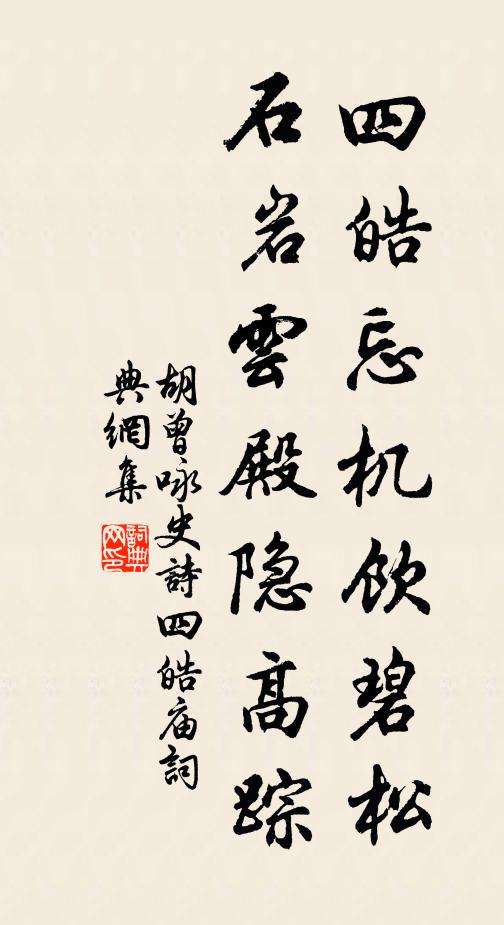 四皓忘机饮碧松
石岩雲殿隐高踪
胡曾咏史詩四皓庙詞
典網集
詞典网印